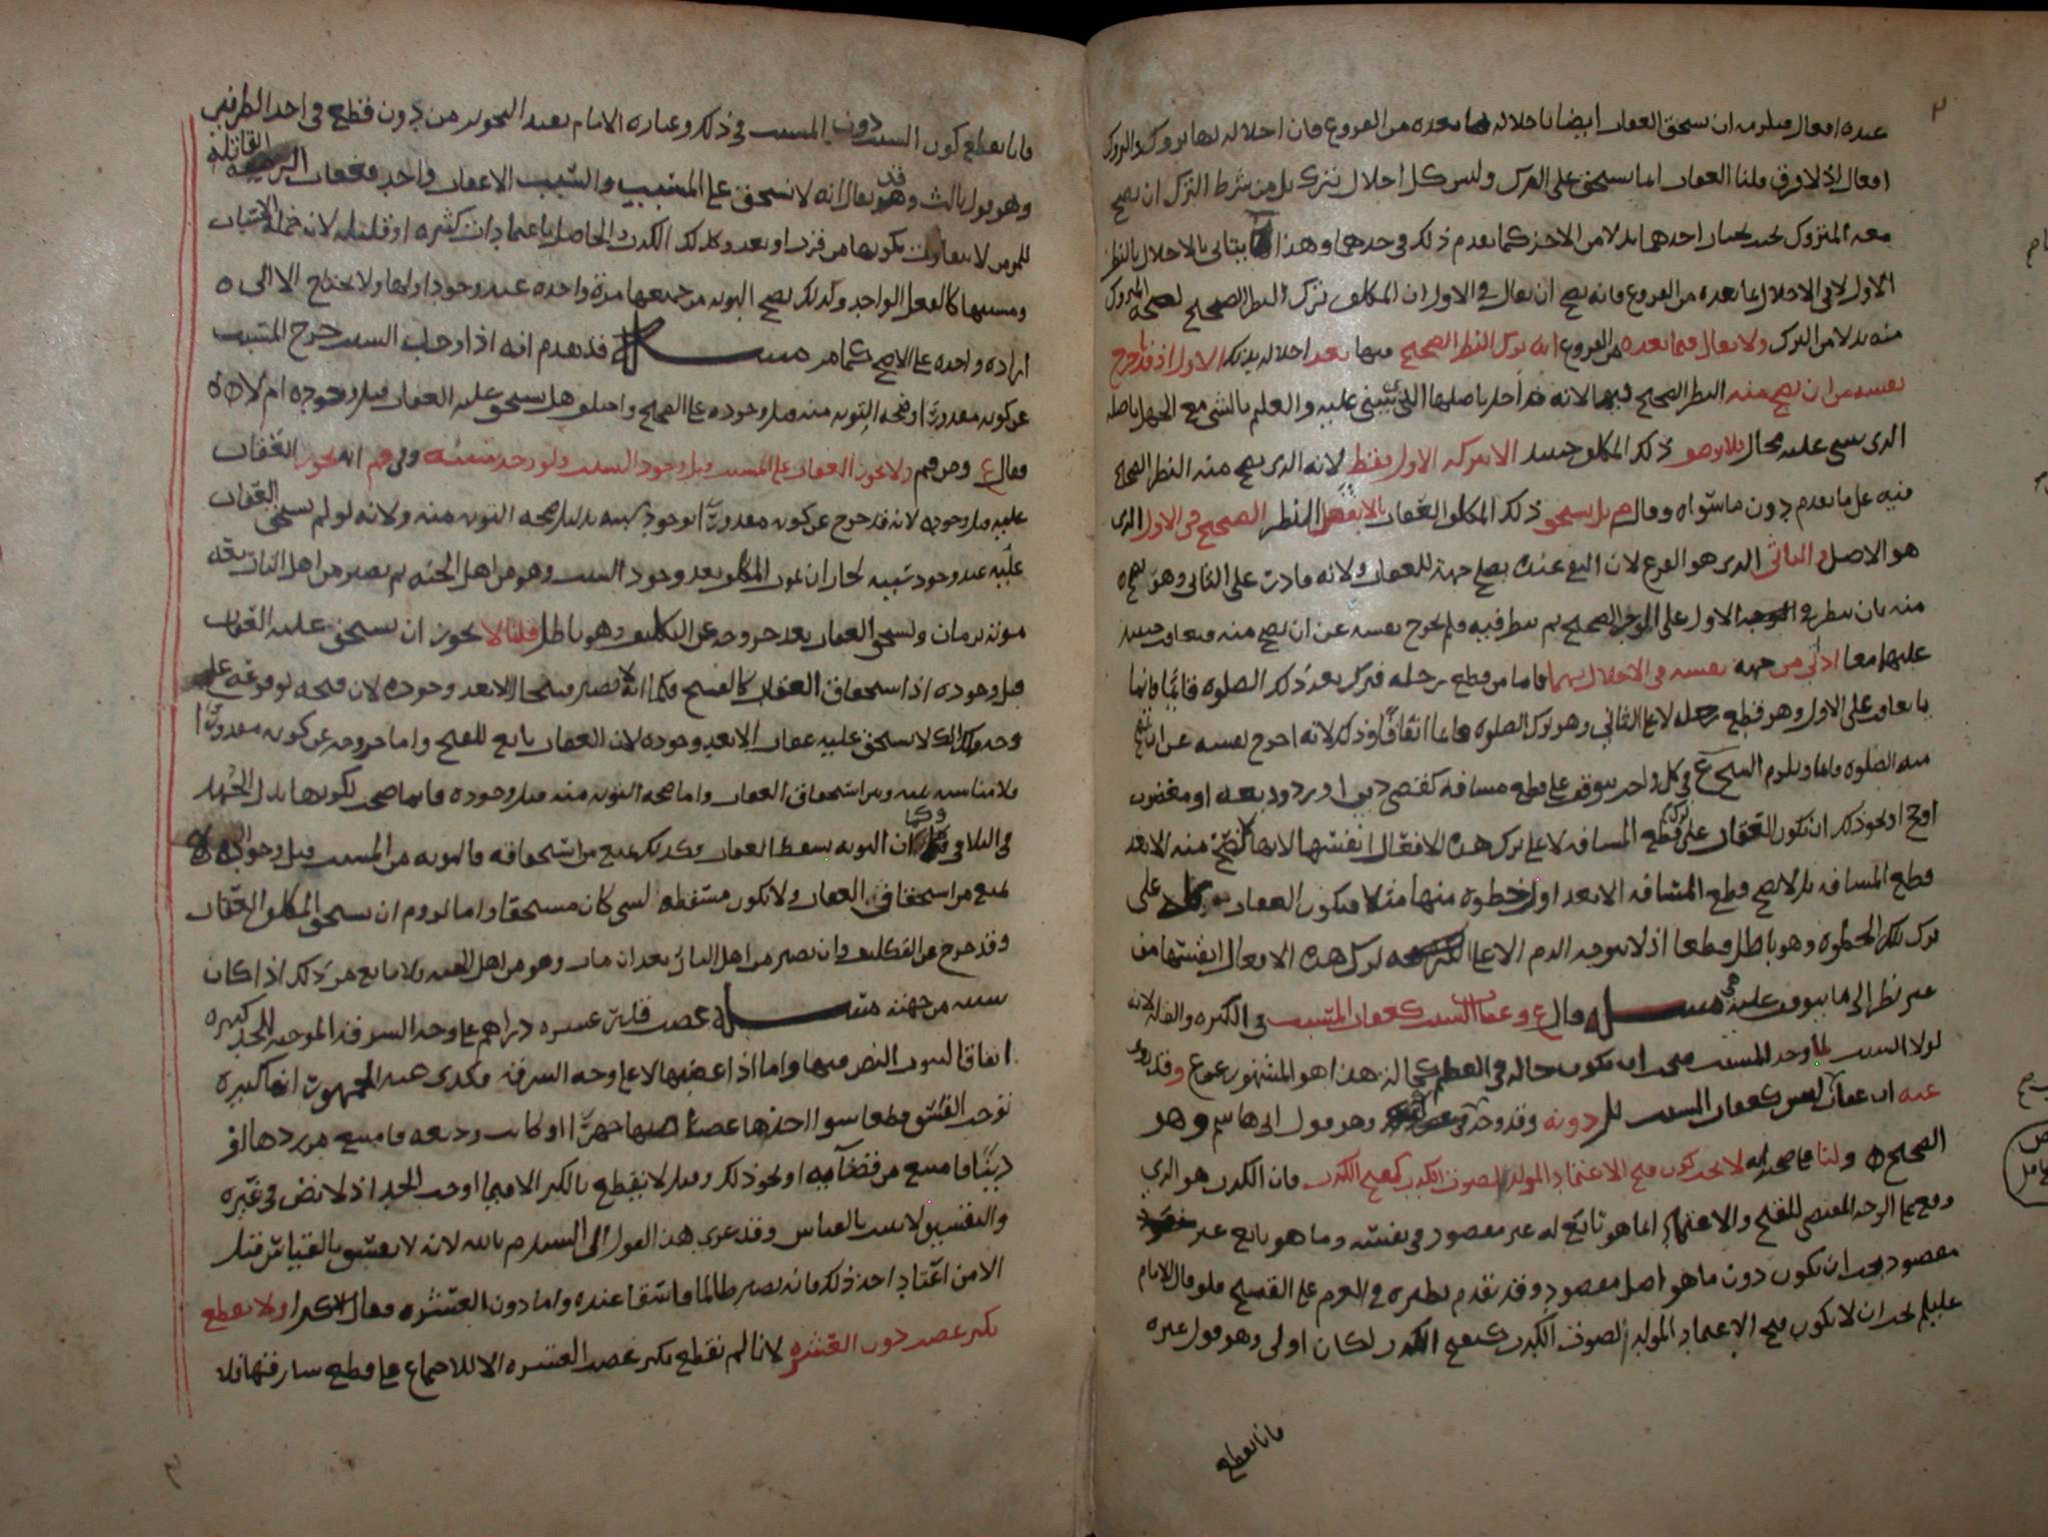 عنده افعال فيلزمه ان يستحق العقاب ايضا باخلاله بما بعده من الفروع فان اخلاله بها تروك والتروك
افعال اذ لا فرق قلنا العقاب انما يستحق على الترك وليس كل اخلال بترك بل من شرط الترك ان يصح
معه المتروك بحيث يختار احدهما بدلا من الاخر كما تقدم ذلك في حدهما وهذا يتاتى بالاخلال بالنظر
الاول لا في الاخلال بما بعده من الفروع فانه يصح ان يقال في الاول ان المكلف ترك النظر الصحيح لصحة المتروك
منه بدلا من الترك ولا يقال فيما بعده من الفروع انه ترك النظر الصحيح فيها بعد اخلاله بذلك الاول اذ قد اخرج
نفسه من ان يصح منه النظر الصحيح فيها لانه قد اخل باصلها الذي تبتني عليه والعلم بالشي مع الجهل باصله
الذي يبتني عليه محال فلا يوصف ذلك المكلف حينئذ الا بتركه الاول فقط لانه الذي يصح منه النظر الصحيح
فيه على ما تقدم دون ما سواه وقال بل يستحق ذلك المكلف العقاب بالا يفعل النظر الصحيح في الاول الذي
هو الاصل والثاني الذي هو الفرع لان عنده يصلح جهة للعقاب ولانه قادر على الثاني وهو يصح
منه بان ينظر في الاول على الوجه الصحيح ثم ينظر فيه فلم يخرج نفسه عن ان يصح منه فيعاقب حينئذ
عليهما معا اذ اتي من جهة نفسه في الاخلال بهما فاما من قطع رجله فترك بعد ذلك الصلوة قائما فانما
يعاقب على الاول وهو قطع رجله لا على الثاني وهو ترك الصلوة قائما اتفاقا وذلك لانه اخرج نفسه عن ان تصح
منه الصلوة قائما ويلزم الشيخ ع في كل واجب يتوقف على قطع مسافة كقضى دين او رد وديعة او مغصوب
او حج او نحو ذلك ان تكون العقاب على ترك قطع المسافة لا على ترك هذه الافعال انفسها لانها لا تصح منه الا بعد
قطع المسافة بل لا يصح قطع المسافة الا بعد اول خطوة منها مثلا فيكون العقاب على
ترك تلك الخطوة وهو باطل قطعا اذ لا يتوجه الذم الا على ترك هذه الافعال انفسها من
غير نظر الى ما يتوقف عليه هي مسئلة قال ع وعقاب السبب كعقاب المسبب في الكثرة والقلة لانه
لولا السبب لما وجد المسبب فيجب ان يكون حاله في العظم كحاله هذا هو المشهور عن ع وقد روي
عنه ان عقاب السبب ليس كعقاب المسبب بل دونه وقد وجد في وهو قول ابي هاشم وهو
الصحيح ولنا في صحته انه لا يجب كون قبح الاعتماد المولد لصوت الكذب كقبح الكذب فان الكذب هو الذي
وقع على الوجه المقتضي للقبح والاعتماد انما هو تابع له غير مقصود في نفسه وما هو تابع غير
مقصود يجب ان يكون دون ما هو اصل مقصود وقد تقدم نظيره في العزم على القبيح فلو قال الامام
عليلم يجب ان لا يكون قبح الاعتماد المولد لصوت الكذب كقبح الكذب لكان اولى وهو قول غيره
فانا نقطع
فانا نقطع كون السبب دون المسبب في ذلك وعبارة الامام تفيد التجويز من دون قطع في احد الطرفين
وهو قول ثالث وقد يقال انه لا يستحق على المسبب والسبب الا عقاب واحد فعقاب الرمية القاتلة
للمومن لا يتفاوت بكونها من قرب او بعد وكذلك الكذب الحاصل باعتمادات كثيرة او قليلة لانه جملة الاسباب
ومسببها كالفعل الواحد وكذلك يصح التوبة من جميعها مرة واحدة عند وجود اولها ولا يحتاج الا الى
ارادة واحدة على الاصح كما مر مسئلة قد تقدم انه اذا وجد السبب خرج المسبب
عن كونه مقدورا وصحة التوبة منه قبل وجوده على الصحيح واختلف هل يستحق عليه العقاب قبل وجوده ام لا
فقال ع ومن وافقهم ولا يجوز العقاب على المسبب قبل وجود السبب ولو وجد سببه وفيهم انه يجوز العقاب
عليه قبل وجوده لانه قد خرج عن كونه مقدورا بوجود سببه بدليل صحة التوبة منه ولانه لو لم يستحق العقاب
عليه عند وجود سببه لجاز ان يموت المكلف بعد وجود السبب وهو من اهل الجنة ثم يصير من اهل النار بعد
موته بزمان ويستحق العقاب بعد خروجه عن التكليف وهو باطل قلنا لا يجوز ان يستحق عليه العقاب
قبل وجوده اذ استحقاق العقاب كالقبح فكما انه لا يصير قبيحا الا بعد وجوده لان قبحه لوقوعه على
وجه كذلك لا يستحق عليه عقاب الا بعد وجوده لان العقاب تابع للقبح واما خروجه عن كونه مقدورا
فلا مناسبة بينه وبين استحقاق العقاب واما صحة التوبة منه قبل وجوده فانما صحت لكونها بذل الجهد
في التلافي وكما ان التوبة تسقط العقاب وكذلك تمنع من استحقاقه فالتوبة من المسبب قبل وجوده
تمنع من استحقاق العقاب ولا تكون مسقطة لشي كان مستحقا واما لزوم ان يستحق المكلف العقاب
وقد خرج عن التكليف وان يصير من اهل النار بعد ان مات وهو من اهل الجنة فلا مانع من ذلك اذا كان
سببه من جهته مسئلة غصب عشرة دراهم على وجه السرقة الموجبة للحد كبيرة
اتفاقا لثبوت النص فيها واما اذا غصبها لا على وجه السرقة فكذى عند الجمهور انها كبيرة
توجب الفسق قطعا سوا اخذها غصبا جهرا او كانت وديعة فامتنع من ردها او
دينا فامتنع من قضائه او نحو ذلك وقيل لا يقطع بالكبر الا فيما اوجب الحد اذ لا نص في غيره
والتفسيق لا يثبت بالقياس وقد عزي هذا القول الى السيد م بالله لانه لا يفسق بالقياس قيل
الا من اعتاد اخذ ذلك فانه يصير ظالما فاسقا عنده واما دون العشرة فقال الاكثر ولا يقطع
بكبر غصب دون العشرة لانا لم نقطع بكبر غصب العشرة الا للاجماع على قطع سارقها فلا